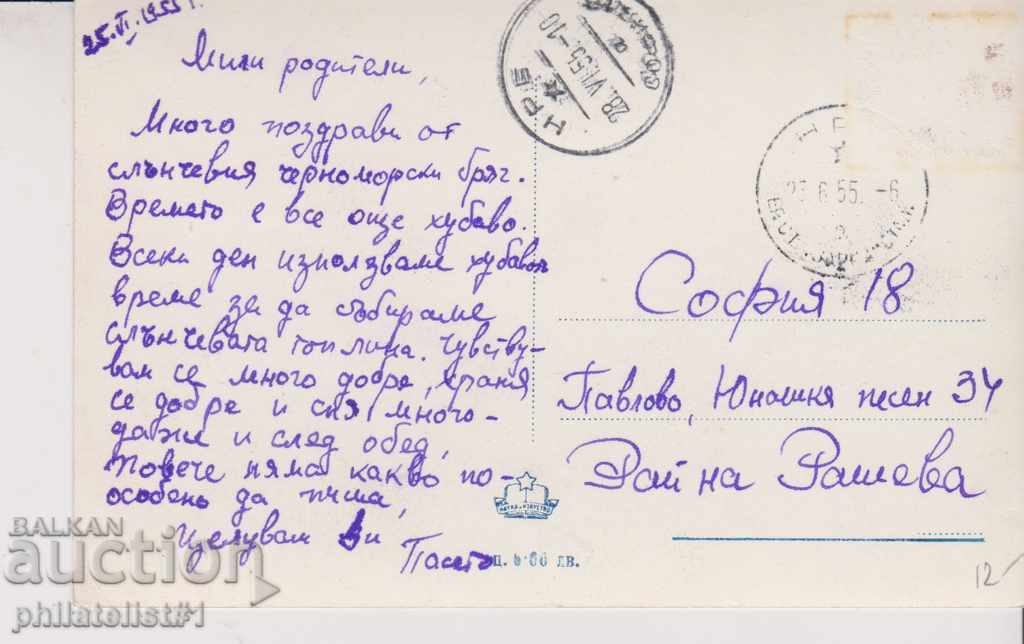 25.VI.1955 г.
Мили родители,
Много поздрави от
слънчевия черноморски бряг.
Времето е все още хубаво.
Всеки ден използваме хубавото
време за да събираме
слънчевата топлина. Чувству-
вам се много добре, храня
се добре и спя много-
даже и след обед,
Повече няма какво по-
особено да пиша,
Целувам Ви
НРБ
28.VI.55-10
6.55.-6
София 18
Павлово, Юнашка песен 34
Райна Рашева
НАУКА И ИЗКУСТВО
ц. 0·60 лв.
12
BALKAN
auction
philatelist#1